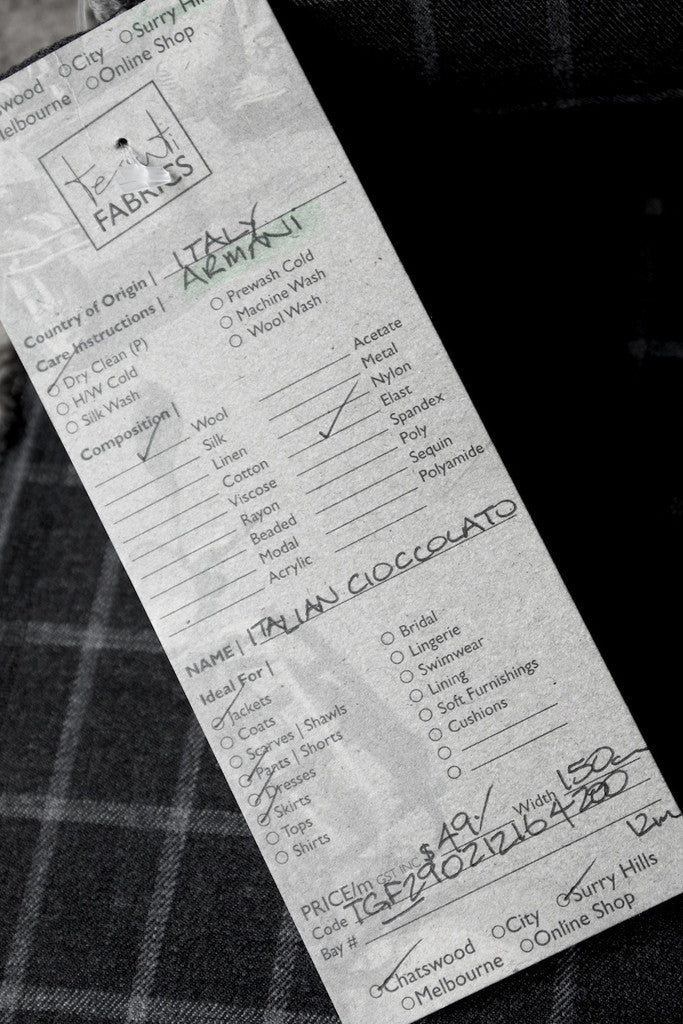 Surry Hi
City
Online Shop
swood
elbourne
FABRICS
Country of Origin | ITALY
ARMANI
Care Instructions |
Dry Clean (P)
H/W Cold
Silk Wash
Prewash Cold
Machine Wash
Wool Wash
Composition |
Wool
Silk
Linen
Cotton
Viscose
Rayon
Beaded
Modal
Acrylic
Acetate
Metal
Nylon
Elast
Spandex
Poly
Sequin
Polyamide
NAME | ITALIAN CIOCCOLATO
Ideal For |
Jackets
Coats
Scarves | Shawls
Pants | Shorts
Dresses
Skirts
Tops
Shirts
Bridal
Lingerie
Swimwear
Lining
Soft Furnishings
Cushions
PRICE/m GST INC $49./ Width 150cm
Code TGF290212164-200
Bay # 12m
Chatswood City Surry Hills
Melbourne Online Shop